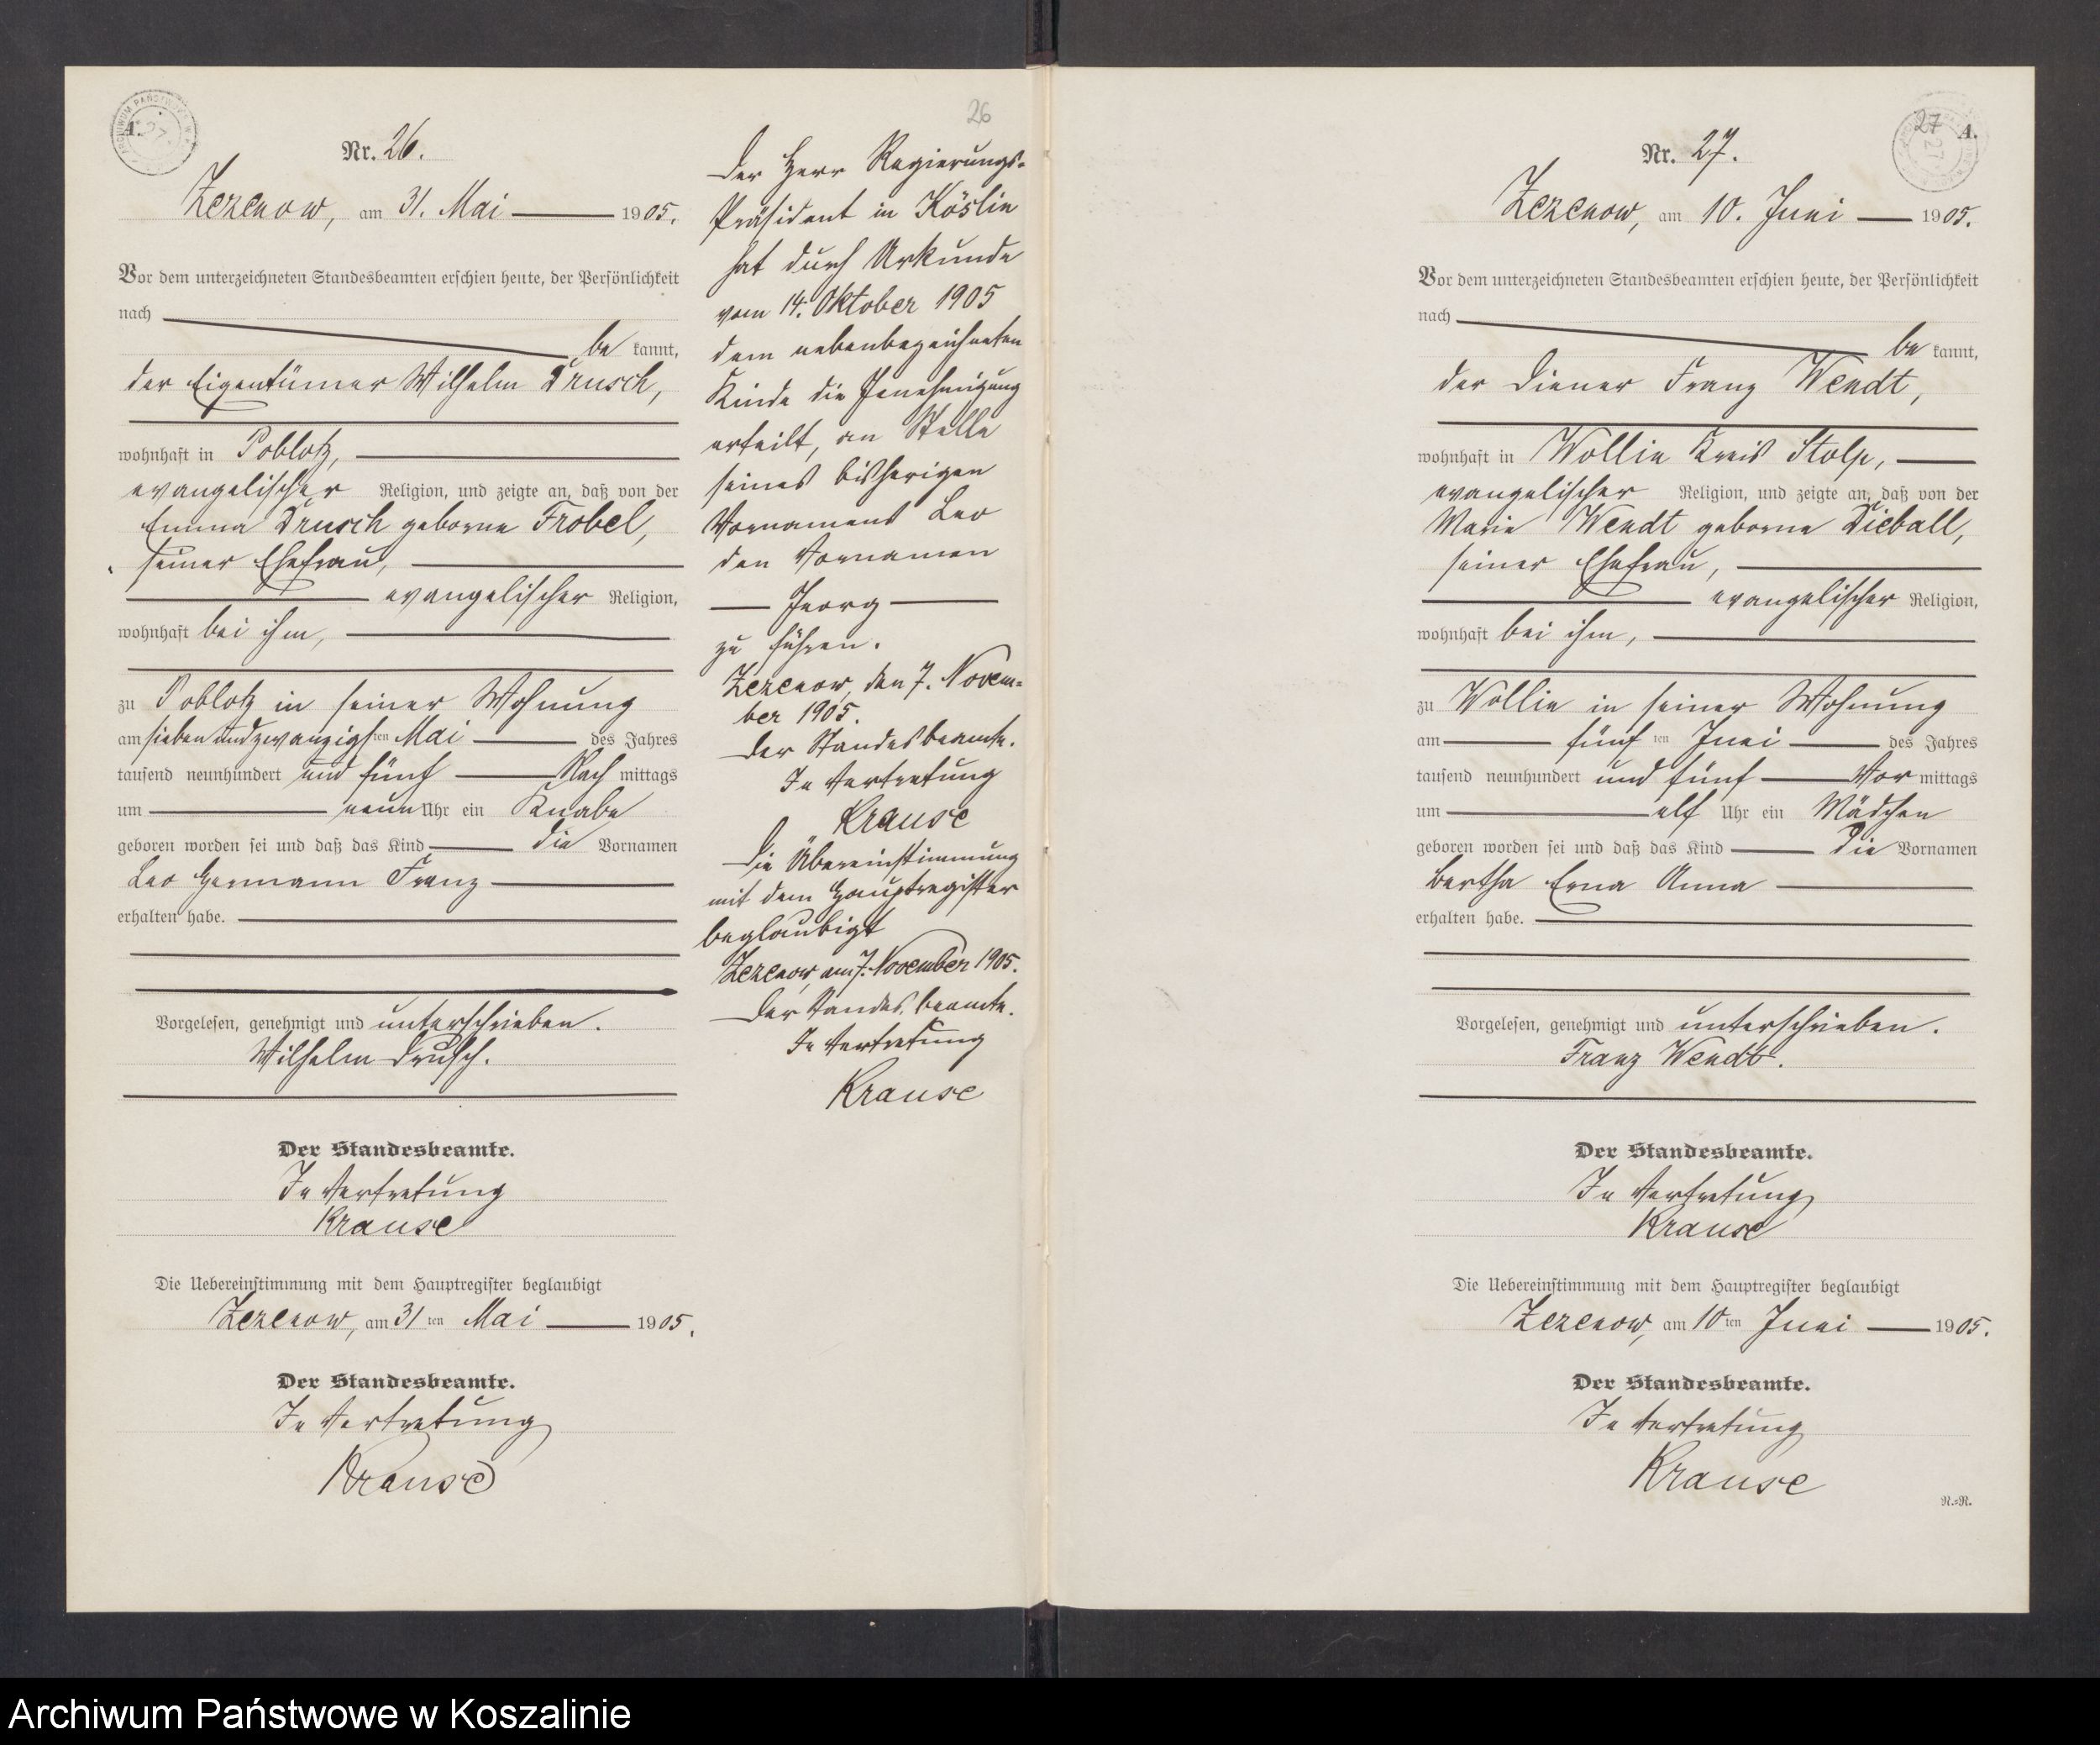 A.
Nr. 26.
Zezenow, am 31. Mai 1905.
Vor dem unterzeichneten Standesbeamten erschien heute, der Persönlichkeit
nach
be kannt,
der Eigentümer Wilhelm Drusch,
wohnhaft in Poblotz,
evangelischer Religion, und zeigte an, daß von der
Emma Drusch geborne Frobel,
seiner Ehefrau,
evangelischer Religion,
wohnhaft bei ihm,
zu Poblotz in seiner Wohnung
am siebenundzwanzigsten Mai des Jahres
tausend neunhundert und fünf Nach mittags
um neun Uhr ein Knabe
geboren worden sei und daß das Kind die Vornamen
Leo Hermann Franz
erhalten habe.
Vorgelesen, genehmigt und unterschrieben.
Wilhelm Drusch.
Der Standesbeamte.
In Vertretung
Krause
Die Uebereinstimmung mit dem Hauptregister beglaubigt
Zezenow, am 31 ten Mai 1905.
Der Standesbeamte.
In Vertretung
Krause
26
Der Herr Regierungs-
Präsident in Köslin
hat durch Urkunde
vom 14. Oktober 1905
dem nebenbezeichneten
Kinde die Genehmigung
erteilt, an Stelle
seines bisherigen
Vornamens Leo
den Vornamen
Georg
zu führen.
Zezenow, den 7. Novem-
ber 1905.
Der Standesbeamte.
In Vertretung
Krause
Die Übereinstimmung
mit dem Hauptregister
beglaubigt
Zezenow, am 7. November 1905.
Der Standesbeamte.
In Vertretung
Krause
27
A.
Nr. 27.
Zezenow, am 10. Juni 1905.
Vor dem unterzeichneten Standesbeamten erschien heute, der Persönlichkeit
nach
be kannt,
der Diener Franz Wendt,
wohnhaft in Wollin Kreis Stolp,
evangelischer Religion, und zeigte an, daß von der
Marie Wendt geborne Dieball,
seiner Ehefrau,
evangelischer Religion,
wohnhaft bei ihm,
zu Wollin in seiner Wohnung
am fünf ten Juni des Jahres
tausend neunhundert und fünf Vor mittags
um elf Uhr ein Mädchen
geboren worden sei und daß das Kind die Vornamen
Bertha Erna Anna
erhalten habe.
Vorgelesen, genehmigt und unterschrieben.
Franz Wendt.
Der Standesbeamte.
In Vertretung
Krause
Die Uebereinstimmung mit dem Hauptregister beglaubigt
Zezenow, am 10 ten Juni 1905.
Der Standesbeamte.
In Vertretung
Krause
N.=R.
Archiwum Państwowe w Koszalinie